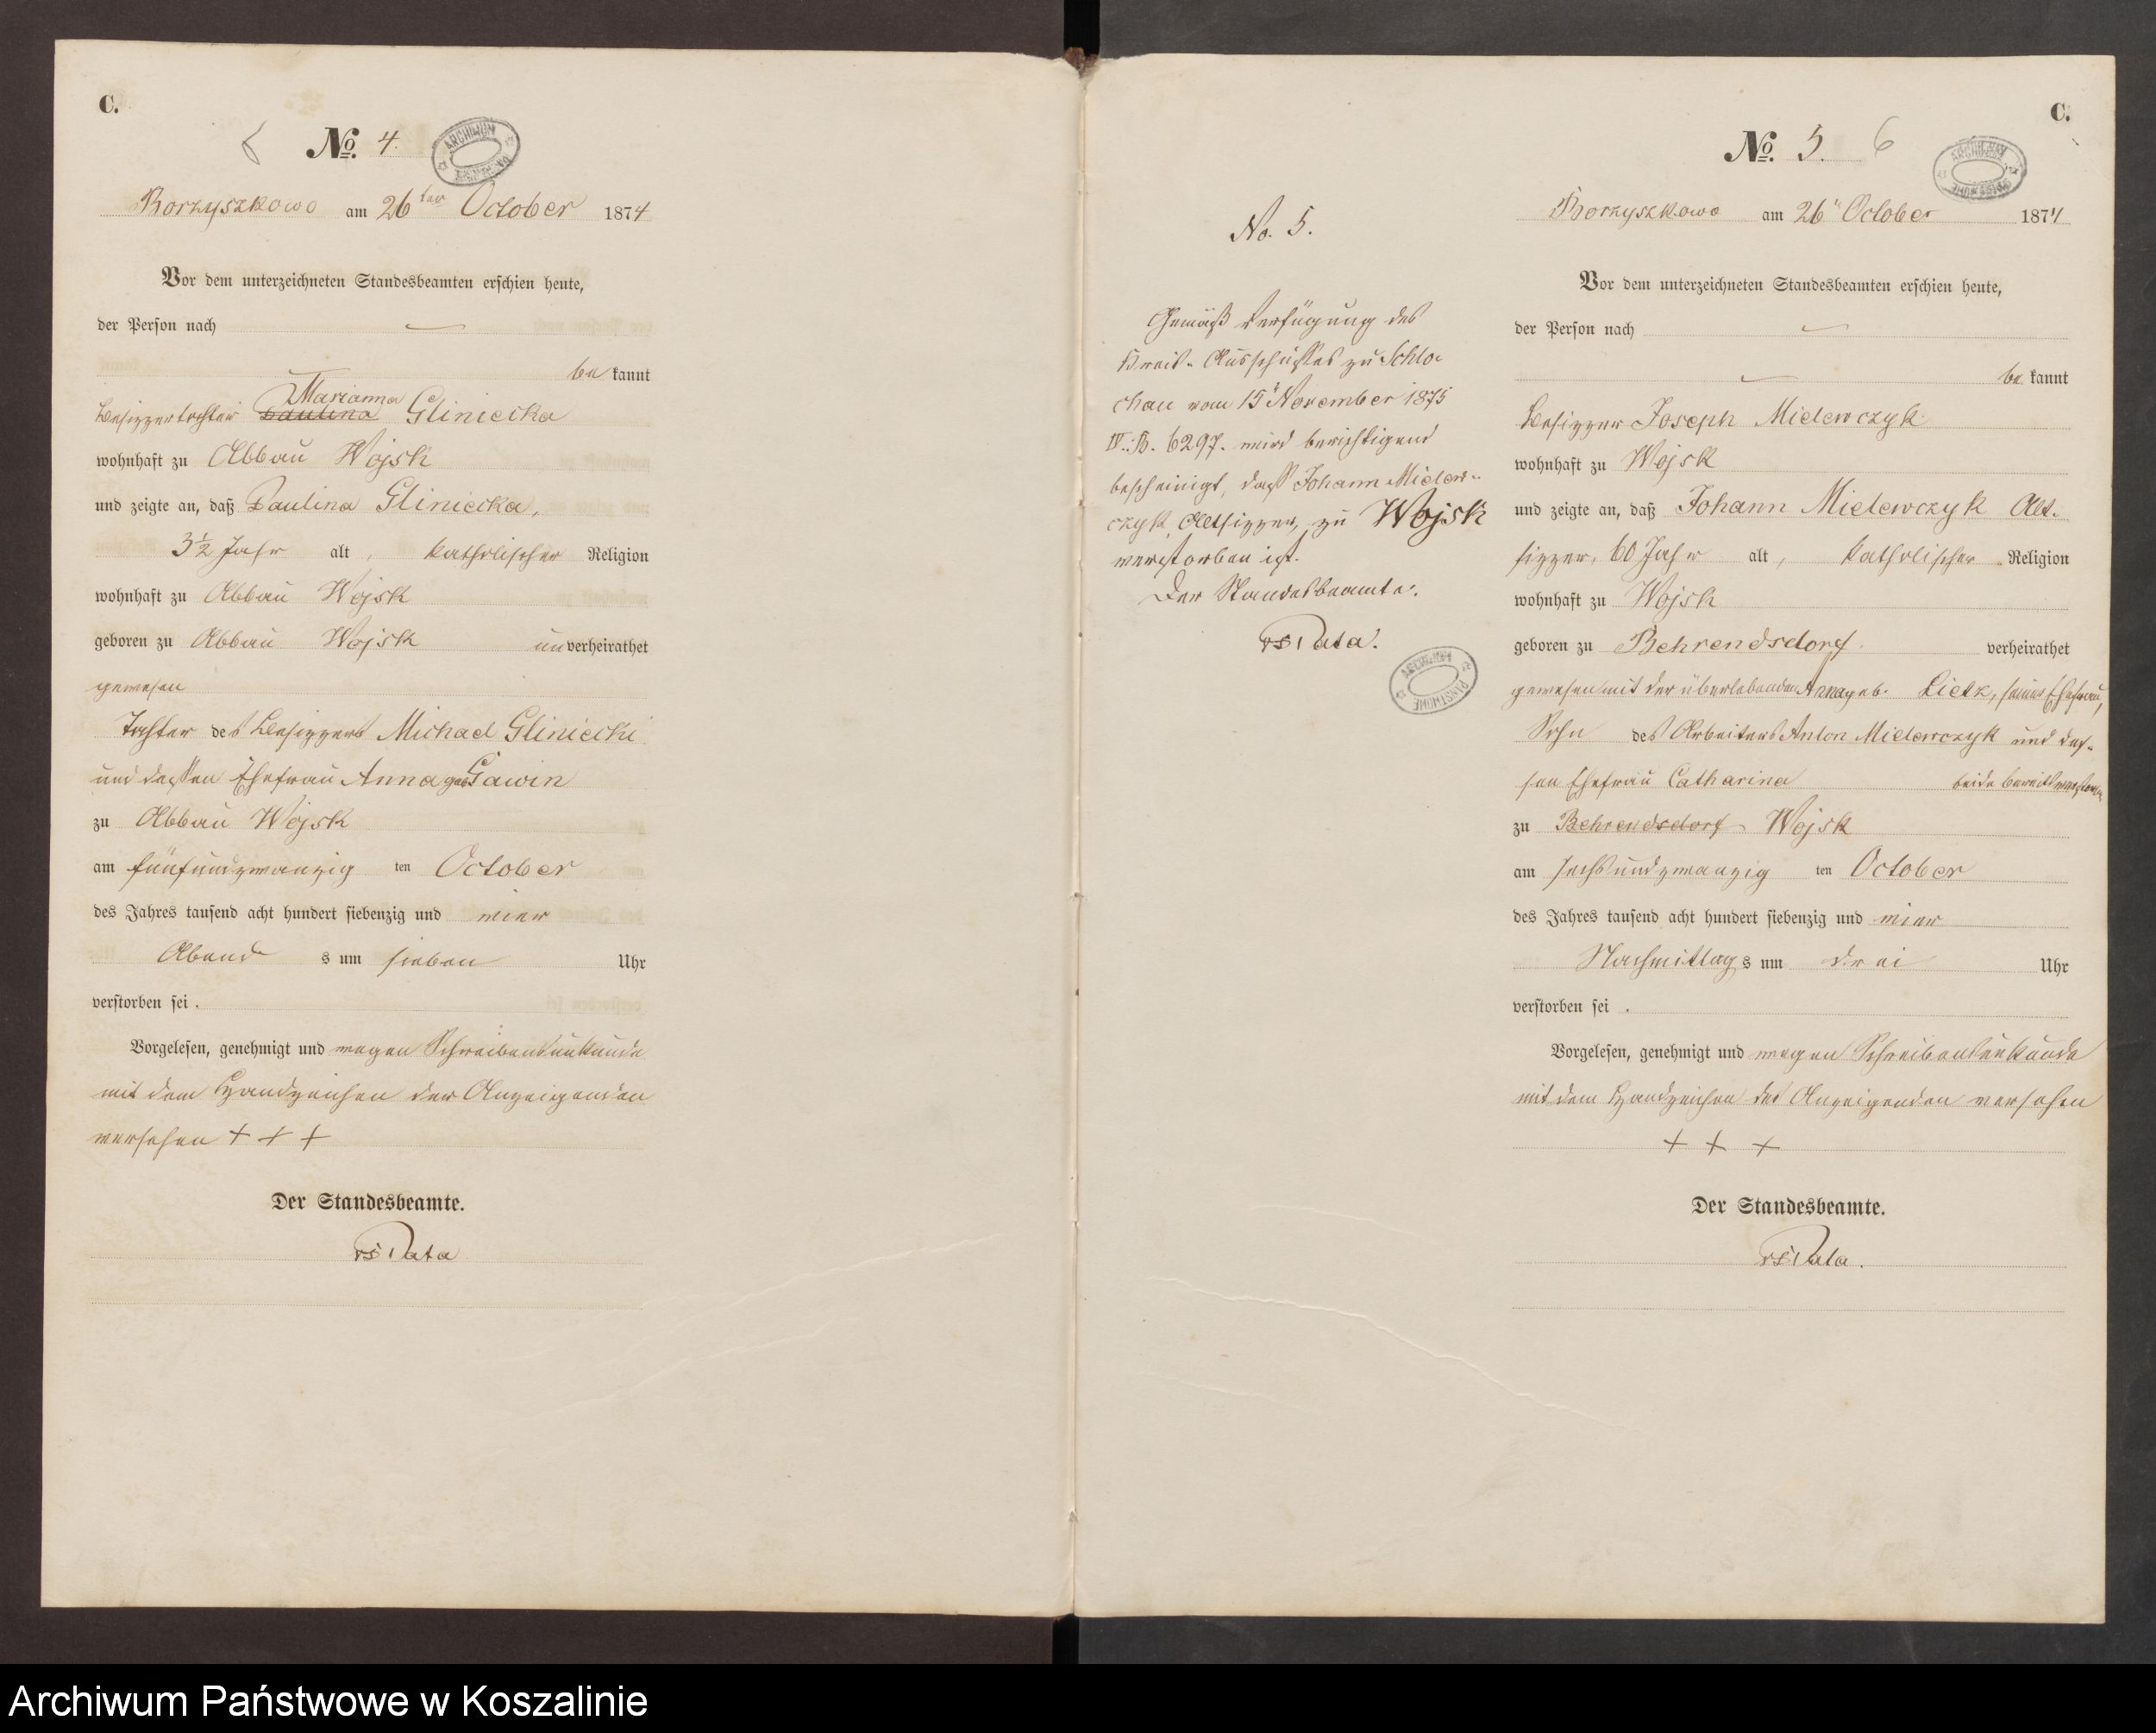 C.
No. 4.
Borzyszkowo am 26ten October 1874
Vor dem unterzeichneten Standesbeamten erschien heute,
der Person nach
bekannt
Marianna
Besitzertochter Paulina Gliniecka
wohnhaft zu Abbau Wojsk
und zeigte an, daß Paulina Gliniecka,
3½ Jahr alt, katholischer Religion
wohnhaft zu Abbau Wojsk
geboren zu Abbau Wojsk unverheirathet
gewesen
Tochter des Besitzers Michael Gliniecki
und dessen Ehefrau Anna geb Gawin
zu Abbau Wojsk
am fünfundzwanzig ten October
des Jahres tausend acht hundert siebenzig und vier
Abends um sieben Uhr
verstorben sei.
Vorgelesen, genehmigt und wegen Schreibensunkunde
mit dem Handzeichen der Anzeigenden
versehen + + +
Der Standesbeamte.
Pata
No. 5.
Gemäß Verfügung des
Kreis-Ausschusses zu Schlo-
chau vom 15t November 1875
IV.:B. 6297. wird berichtigend
bescheinigt, daß Johann Mielew-
czyk, Altsitzer, zu Wojsk
verstorben ist.
Der Standesbeamte.
Pata.
C.
No. 5. 6
Borzyszkowo am 26t October 1874
Vor dem unterzeichneten Standesbeamten erschien heute,
der Person nach
bekannt
Besitzer Joseph Mielewczyk
wohnhaft zu Wojsk
und zeigte an, daß Johann Mielewczyk Alt-
sitzer, 60 Jahr alt, katholischer Religion
wohnhaft zu Wojsk
geboren zu Behrendsdorf verheirathet
gewesen mit der überlebenden Anna geb. Lietk, seiner Ehefrau,
Sohn des Arbeiters Anton Mielewczyk und des-
sen Ehefrau Catharina beide bereits verstorben
zu Behrendsdorf Wojsk
am sechsundzwanzig ten October
des Jahres tausend acht hundert siebenzig und vier
Nachmittags um drei Uhr
verstorben sei.
Vorgelesen, genehmigt und wegen Schreibensunkunde
mit dem Handzeichen des Anzeigenden versehen
+ + +
Der Standesbeamte.
Pata.
ARCHIWUM PAŃSTWOWE
Archiwum Państwowe w Koszalinie